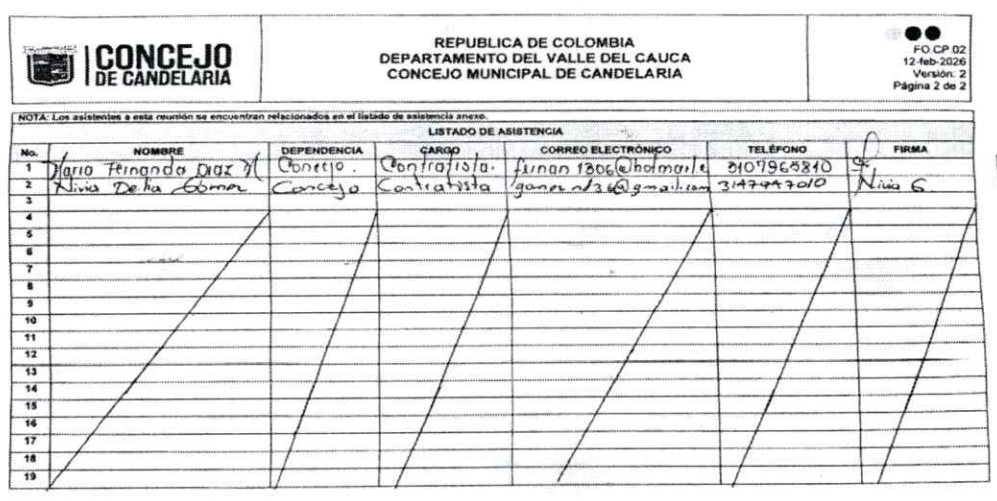 CONCEJO
DE CANDELARIA
REPUBLICA DE COLOMBIA
DEPARTAMENTO DEL VALLE DEL CAUCA
CONCEJO MUNICIPAL DE CANDELARIA
FO.CP.02
12-feb-2026
Versión: 2
Página 2 de 2
NOTA: Los asistentes a esta reunión se encuentran relacionados en el listado de asistencia anexo.
LISTADO DE ASISTENCIA
No. NOMBRE DEPENDENCIA CARGO CORREO ELECTRÓNICO TELÉFONO FIRMA
1 Maria Fernanda Diaz M Concejo. Contratista. 3107965840
2 Nivia Delia Gómez Concejo Contratista 3147947010 Nivia G.
3
4
5
6
7
8
9
10
11
12
13
14
15
16
17
18
19